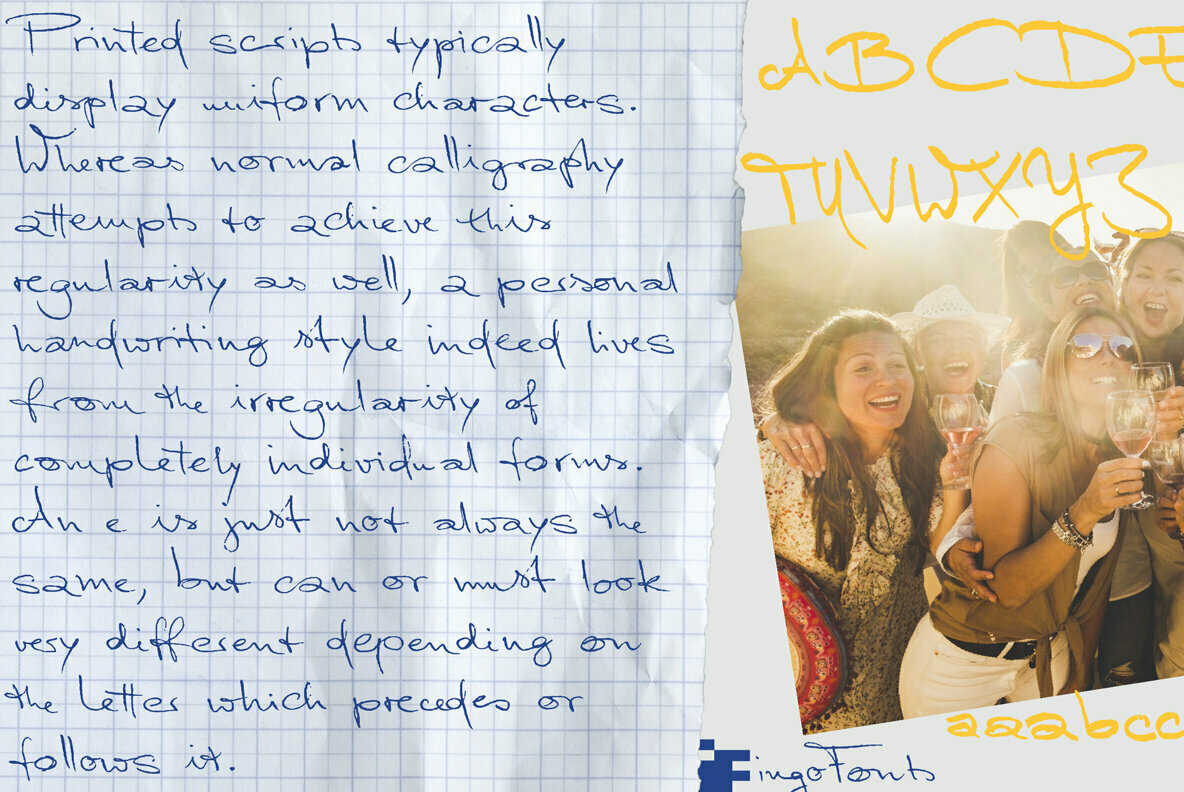 Printed scripts typically
display uniform characters.
Whereas normal calligraphy
attempts to achieve this
regularity as well, a personal
handwriting style indeed lives
from the irregularity of
completely individual forms.
An e is just not always the
same, but can or must look
very different depending on
the letter which precedes or
follows it.
ABCDE
TUVWXYZ
aaabcc
FingoFonts